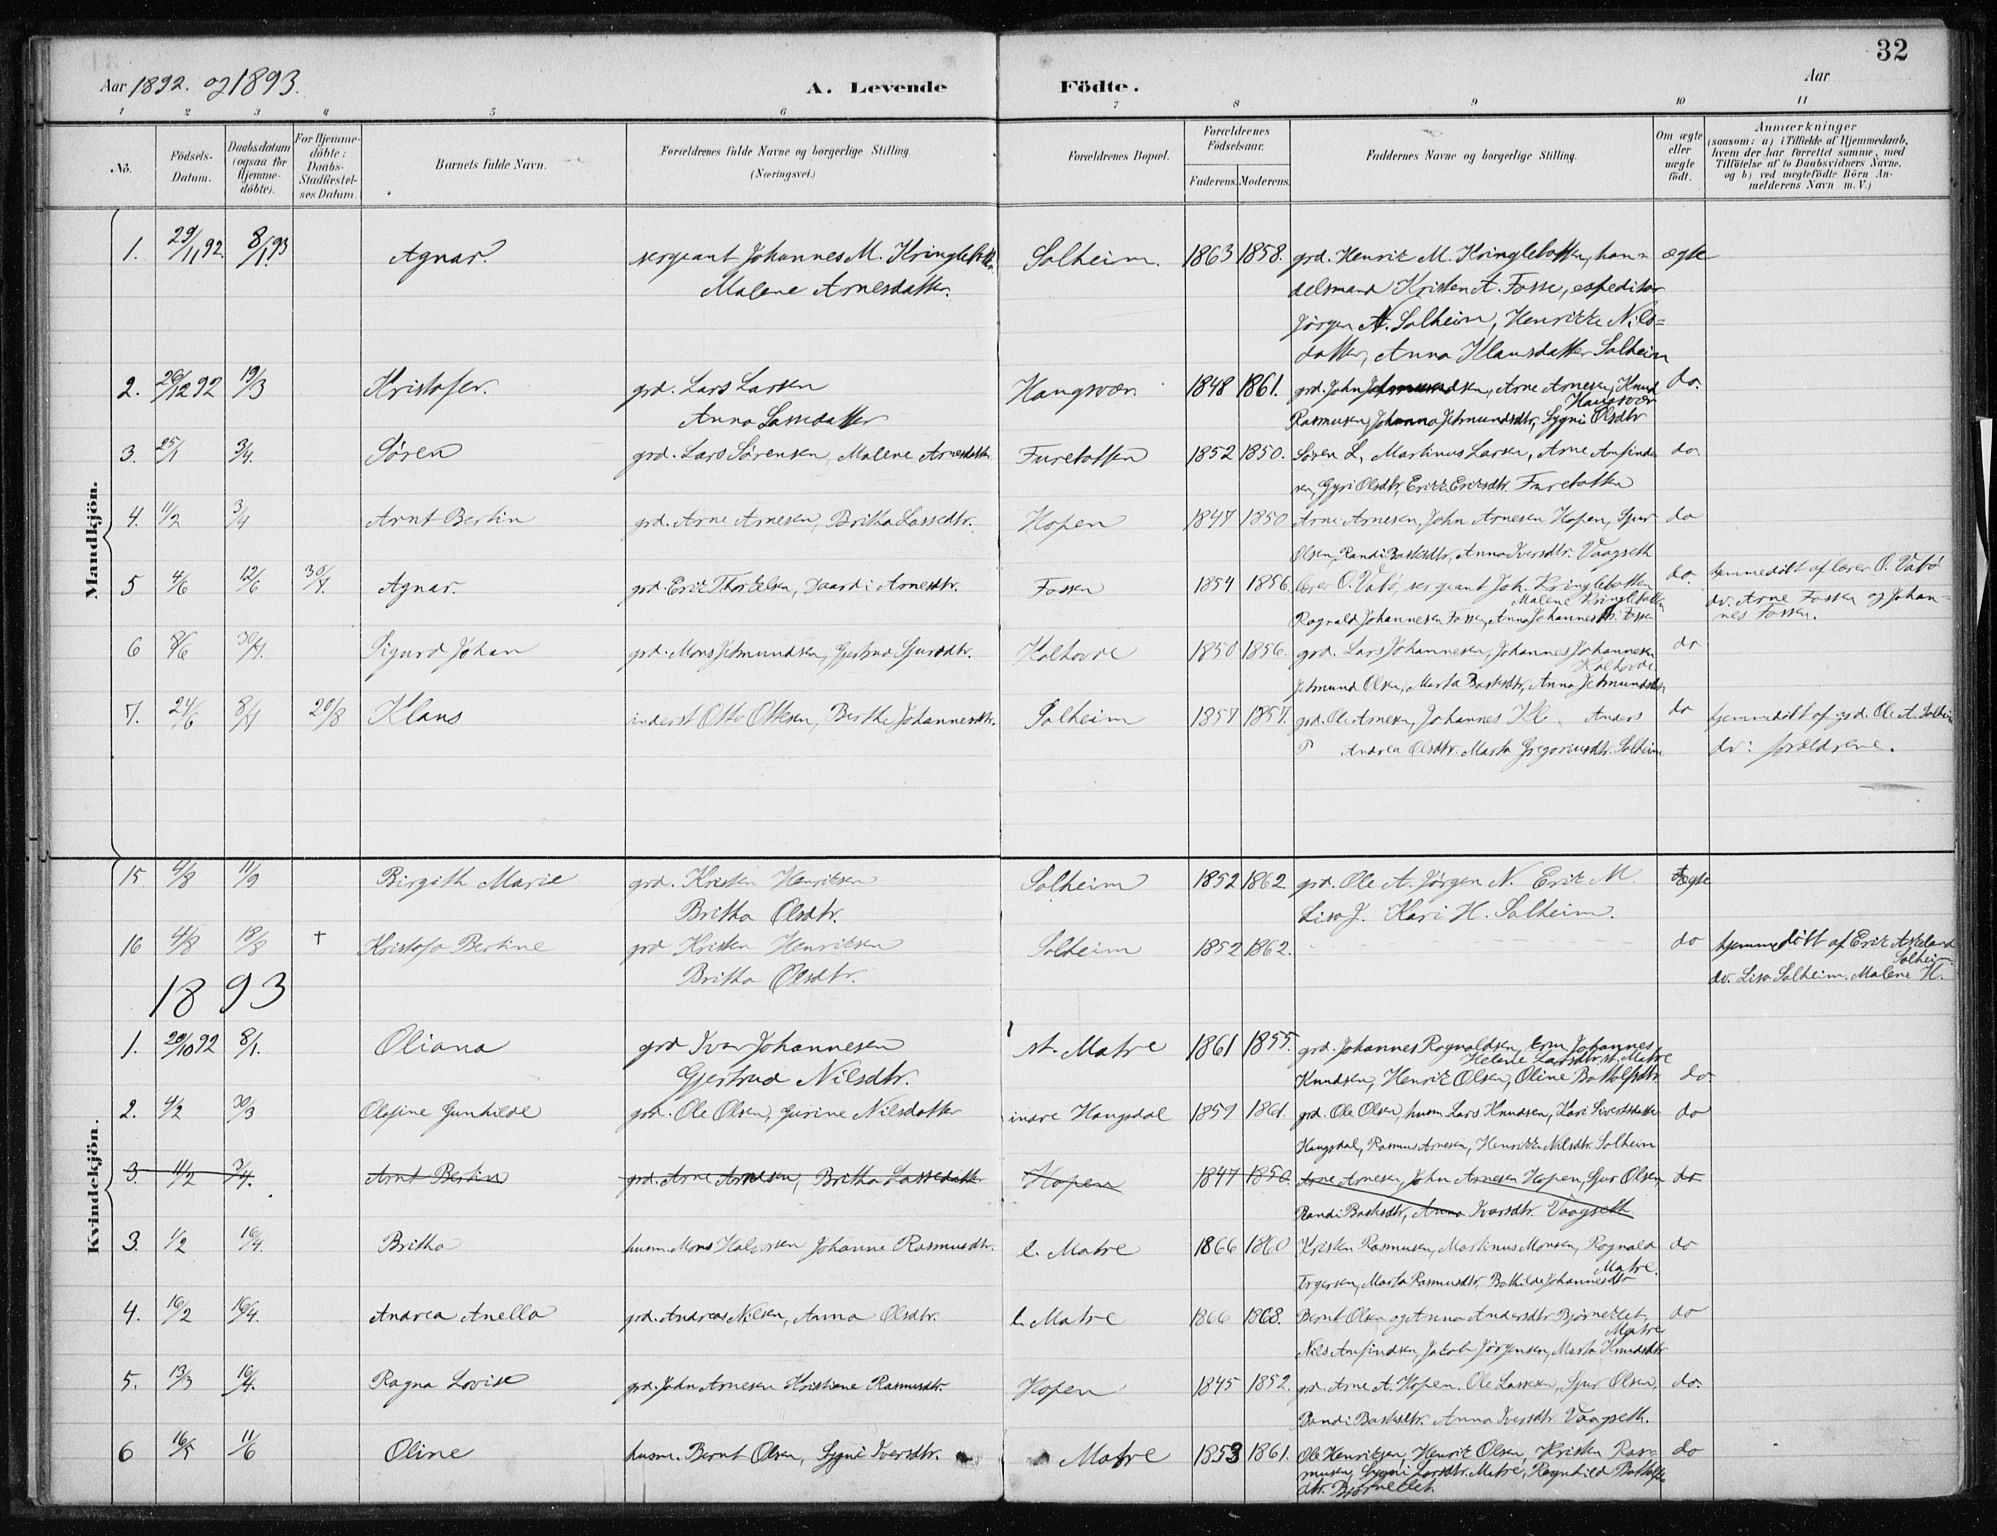 32
Aar 1892. og 1893.
A. Levende Födte.
Aar
1 2 3 4 5 6 7 8 9 10 11
No.
Födsels-Datum.
Daabsdatum (ogsaa for Hjemmedöbte).
For Hjemmedöbte: Daabs-Stadfæstelses Datum.
Barnets fulde Navn.
Forældrenes fulde Navne og borgerlige Stilling (Næringsvei.)
Forældrenes Bopæl.
Forældrenes Födselsaar.
Faderens. Moderens.
Faddernes Navne og borgerlige Stilling.
Om ægte eller uægte födt.
Anmærkninger
(saasom: a) i Tilfælde af Hjemmedaab, hvem der har forrettet samme, med Tilföielse af to Daabsvidners Navne. og b) ved uægtefödte Börn Anmelderens Navn m. V.)
Mandkjön.
1. 29/11 92. 8/1 93 Agnar. sergeant Johannes M. Kringlebotten Solheim. 1863 1858. grd. Henrik M. Kringlebotten, han- ægte
Malene Arnesdatter. delsmand Kristen A. Fosse, espeditør
Jörgen A. Solheim, Henrikke Nils-
datter, Anna Klausdatter Solheim
2. 26/12 92 19/3 Kristofer. grd. Lars Larsen Haugsvær 1848 1861. grd. John Jetmundsen, Arne Arnesen, Knud do.
Haugsvær
Anna Lassedatter Rasmusen, Johanna Jetmundsdtr, Sygni Olsdtr
3. 25/1 3/4. Sören grd. Lars Sörensen, Malene Arnesdatter Furebotten 1852 1850. Sören L, Martinus Larsen, Arne Amfinds do
sen, Gyri Olsdtr, Erikke Eriksdtr. Furebotten
4. 11/2 3/4 Arnt Bertin grd. Arne Arnesen, Britha Lassedtr. Hopen 1847 1850 Arne Arnesen, John Arnesen Hopen, Sjur do
Olsen, Randi Baststdtr, Anna Iversdtr. Vaagseth
5 4/6 12/6 30/7. Agnar. grd. Erik Thorkelsen, Daardi Arnesdtr. Fossen 1854 1856. lærer O. Vabö, sergeant Joh. Kringlebotten do. hjemmedöbt af lærer O. Vabö
Malene Kringlebotten dv. Arne Fossen og Johan-
Ragnald Johannesen Fossen, Anna Johannesdtr. Fossen nes Fossen.
6 8/6 30/7. Sigurd Johan grd. Mons Jetmundsen, Gjertrud Sjursdtr. Kalhovde 1850 1856. grd. Lars Johannesen, Johannes Johannesen do
Kalhovde
Jetmund Olsen, Marta Bastsdtr, Anna Jetmundsdtr
7. 24/6 8/7 20/8 Klaus inderst Otto Ottesen, Berthe Johannesdtr. Solheim 1857 1857. grd. Ole Arnesen, Johannes Kl Anders do hjemmedöbt af grd. Ole A. Solheim
P Andrea Olsdtr. Marta Gregoriusdtr. Solheim dv: forældrene.
Kvindekjön.
15. 4/8 11/9 Birgith Marie grd. Kristen Henriksen Solheim 1852 1862. grd. Ole A. Jörgen N. Erik M. ægte
Britha Olsdtr. Lisa J. Kari H. Solheim.
16 4/8 18/8 † Kristofa Bertine grd Kristen Henriksen Solheim 1852 1862. do hjemmedöbt af Erik Askeland
Solheim
Britha Olsdtr. dv. Lisa Solheim. Malene H.
1893
1. 20/10 92 8/1. Oliana grd Iver Johannesen st. Matre 1861 1855. grd. Johannes Ragnvaldsen, Johannes
Helene Larsdtr. st. Matre
Gjertrud Nilsdtr. Knudsen, Henrik Olsen, Oline Botolfsdtr do
2. 4/2 30/3 Olafine Gunhilde grd. Ole Olsen, Gurine Nilsdatter indre Haugsdal 1859 1861. grd. Ole Olsen, husm. Lars Knudsen, Kari Sivertsdatter do
Haugsdal, Rasmus Arnesen, Henrikke Nilsdtr. Solheim
3. 11/2 3/4. Arnt Bertin grd. Arne Arnesen, Britha Lassedatter Hopen 1847 1850. Arne Arnesen, John Arnesen Hopen, Sjur Olsen do
Randi Bastsdtr, Anna Iversdtr. Vaagseth
3. 1/2 16/4. Britha husm. Mons Halvorsen Johanne Rasmusdtr. l. Matre 1866 1860 Kristen Rasmusen, Martinus Monsen, Ragnald do
Matre.
Torgersen, Marta Rasmusdtr. Bothilde Johannesdtr
4. 16/2 16/4. Andrea Anella grd. Andreas Nilsen, Anna Olsdtr. l. Matre 1866 1868. Bernt Olsen og Anna Andersdtr. Björneklet, do
Matre
Nils Amfindsen, Jakob Jörgensen, Marta Knudsdtr
5. 13/3 16/4. Ragna Lovise grd. John Arnesen Kristiane Rasmusdtr. Hopen 1845 1852. grd. Arne A. Hopen. Ole Lassesen, Sjur Olsen, do.
Randi Bastsdtr. Anna Iversdtr. Vaagseth.
6 16/5 11/6 Oline husm. Bernt Olsen, Sygni Iversdtr. Matre 1853 1861. Ole Henriksen, Henrik Olsen, Kristen Ras- do
musen, Sygni Larsdtr. Matre, Ragnhild Botolfs-
dtr. Björneklet